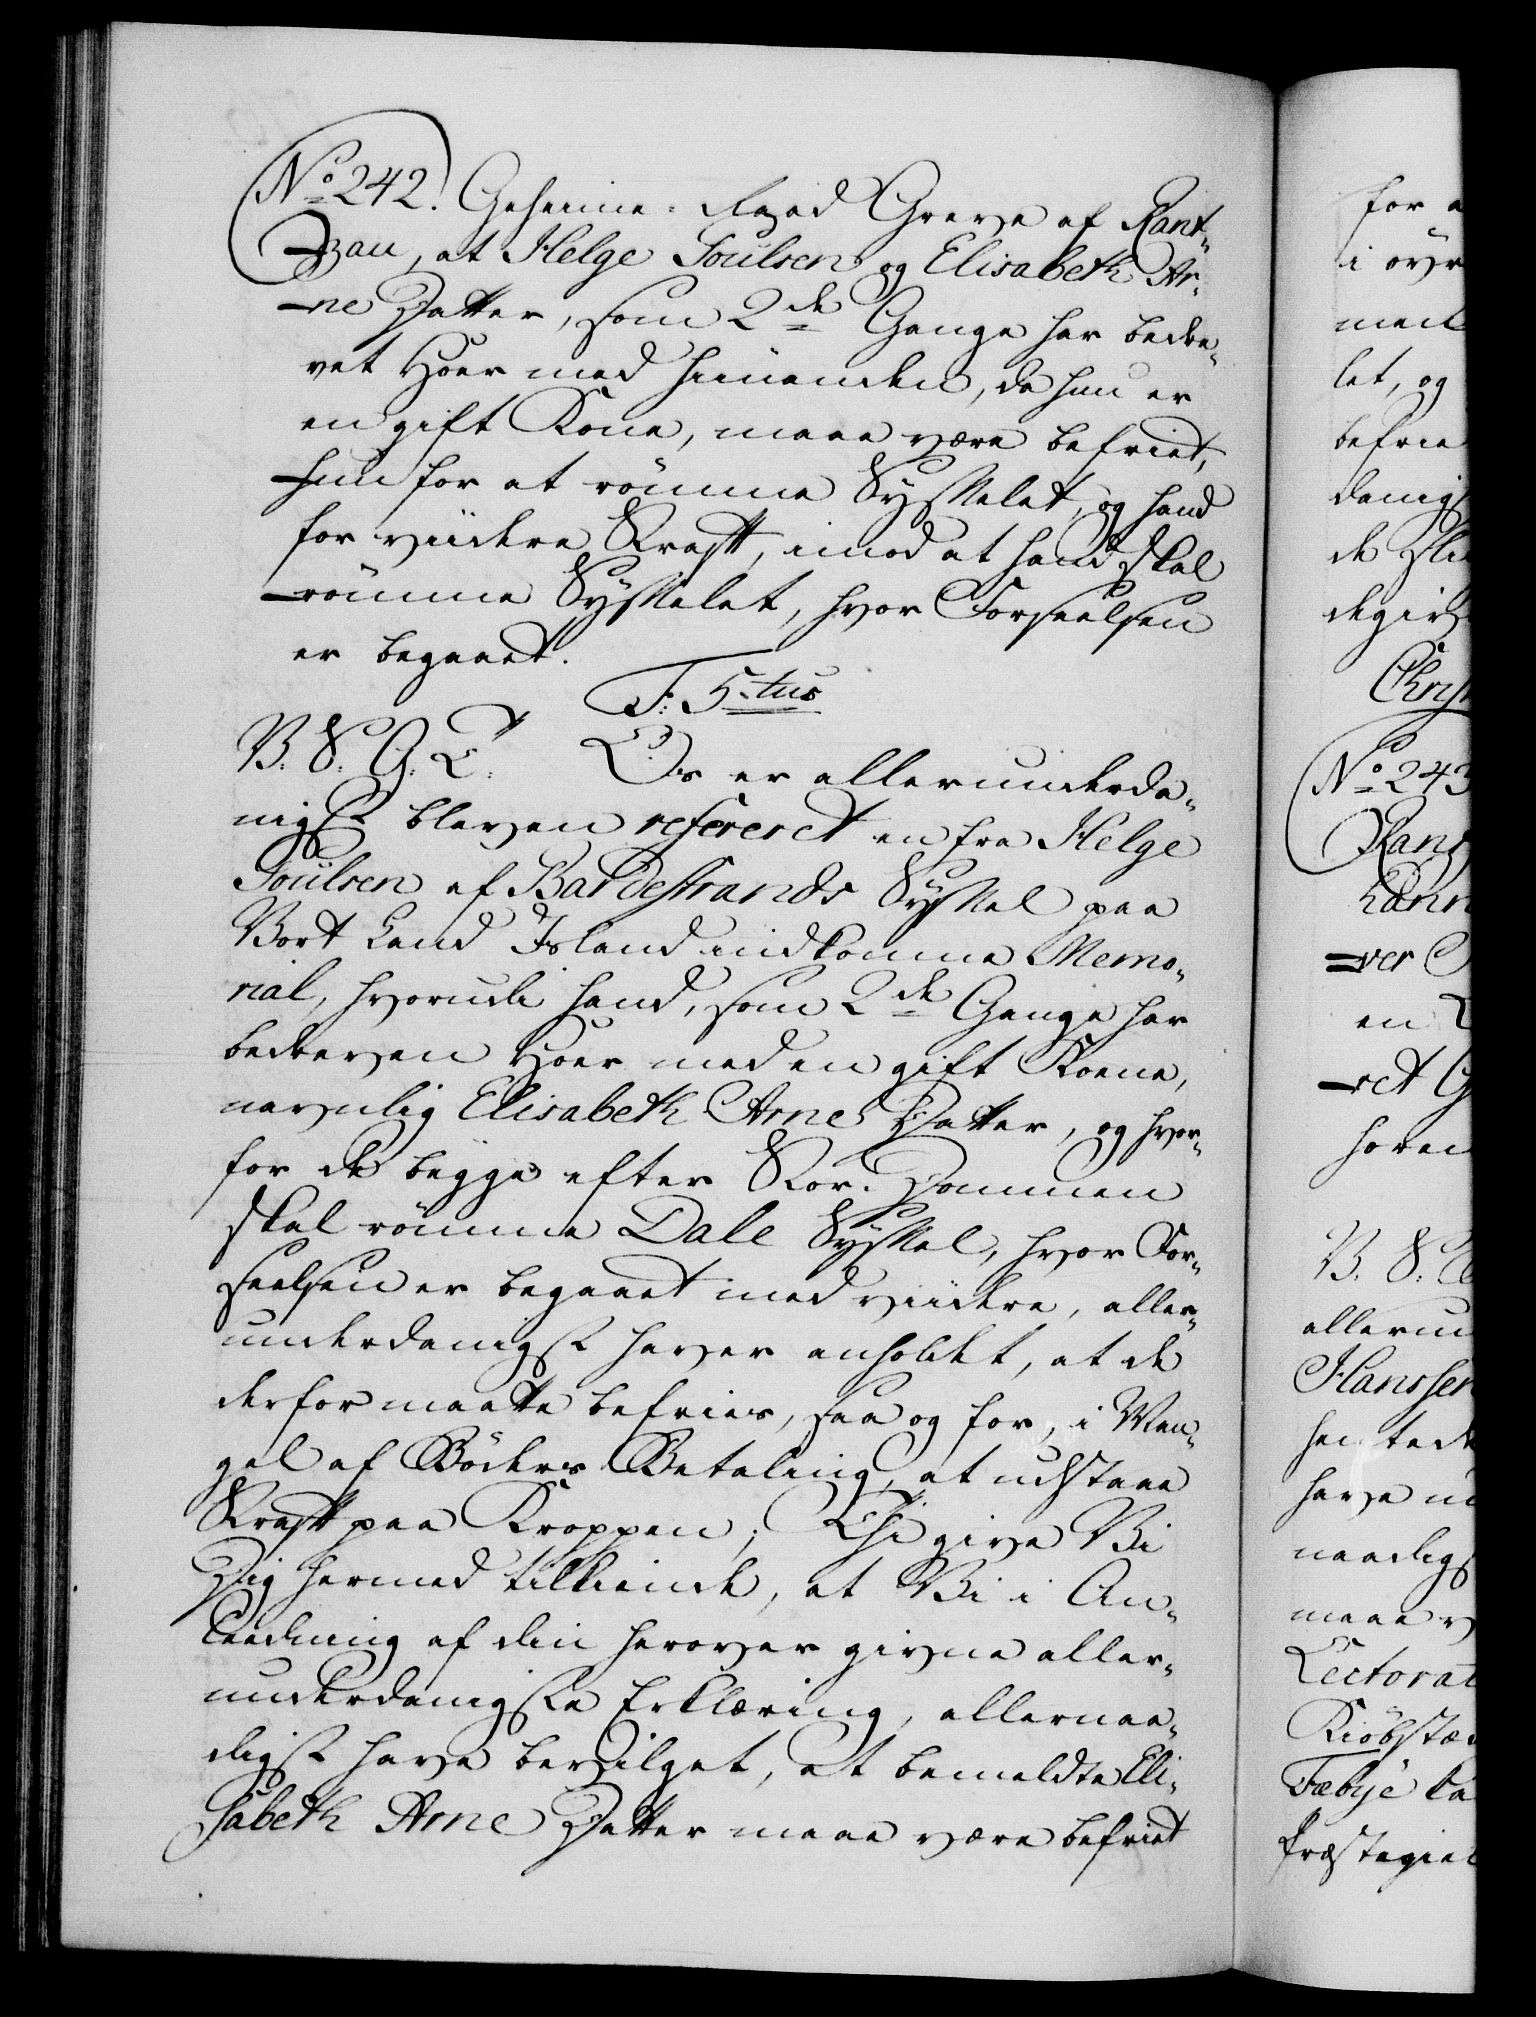 No 242. Geheime-Raad Greve af Rant-
zau, at Helge Poulsen og Elisabeth Ar-
ne Datter, som 2de Gange har bedre-
vet Hoer med hinanden, da hun er
en gift Kone, maae være befriet,
hun for at römme Sysselet, og hand
for viidere Straff, imod at hand skal
römme Sysselet, hvor Forseelsen
er begaaet.
F: 5.tus
V. S. G. T. Os er allerunderda-
nigst bleven refereret en fra Helge
Poulsen af Bardestrands Syssel paa
Vort Land Island indkomne Memo-
rial, hvorudi hand, som 2de Gange har
bedreven Hoer med en gift Koene,
navnlig Elisabeth Arne Datter, og hvor-
for de begge efter Stor-Dommen
skal römme Dale Syssel, hvor For-
seelsen er begaaet med viidere, aller-
underdanigst haver anholdet, at de
derfor maatte befries, saa og for, i Man-
gel af Böders Betaling, at udstaae
Straff paa Kroppen; Thi give Vi
Dig hermed tilkiende, at Vi i An-
leedning af din herover givne aller-
underdanigste Erklæring, allernaa-
digst have bevilget, at bemeldte Eli-
sabeth Arne Datter maae være befriet
for a
i övr
med
let, og
befrie
danigs
degiv
Christ
No 243
Rantz
ver
en
ret G
horen
V. S.
allerun
Hanssen
have un
naadigs
maae v
Lectorat
Kiöbstæd
Fæbye ka
Præstegiel